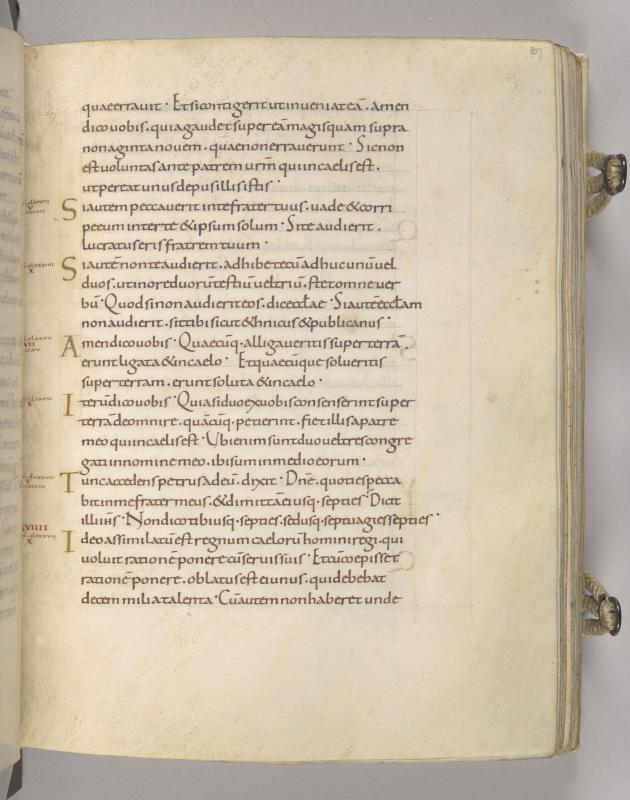 37
quaeerrauit · Etsicontigeritutinueniateā . amen
dicouobis . quiagaudetsupereāmagisquam supra
nonagintanouem . quaenonerrauerunt · Sicnon
estuoluntasantepatrem urm̄ quiincaelisest .
utpereatunusdepusillisistis ·
Siautem peccauerit intefratertuus . uade &corri
peeum interte &ipsumsolum · Siteaudierit .
lucratuserisfratremtuum ·
Siautēnonteaudierit . adhibetecūadhucunūuel
duos . utinoreduorūtestiūueltriū . stetomneuer
bū · Quodsinonaudieriteos . dicecclae · Siautēeccłam
nonaudierit . sittibisicut&hnicus&publicanus ·
Amendicouobis · Quaecūq . alligaueritissuperterrā .
eruntligata&incaelo · Etquaecūque solueritis
superterram . erunt soluta &incaelo ·
Iterūdicouobis · Quiasiduoexuobisconsenserintsuper
terrādeomnire . quācūq . petierint . fietillisapatre
meo quiincaelisest · Ubienimsuntduoueltrescongre
gatiinnominemeo . ibisuminmedioeorum ·
Tuncaccedenspetrusadeū . dixit · Dn̄e . quotiespecca
bitinmefratermeus . &dimittāeiusq . septies · Dicit
illiihs · Nondicotibiusq . septies . sedusq . septuagiessepties ·
Ideoassimilatūestregnumcaelorūhominiregi . qui
uoluitrationēponerecūseruissuis · Etcūcoepisset
rationēponere . oblatusesteiunus . quidebebat
decemmiliatalenta · Cūautemnonhaberetunde